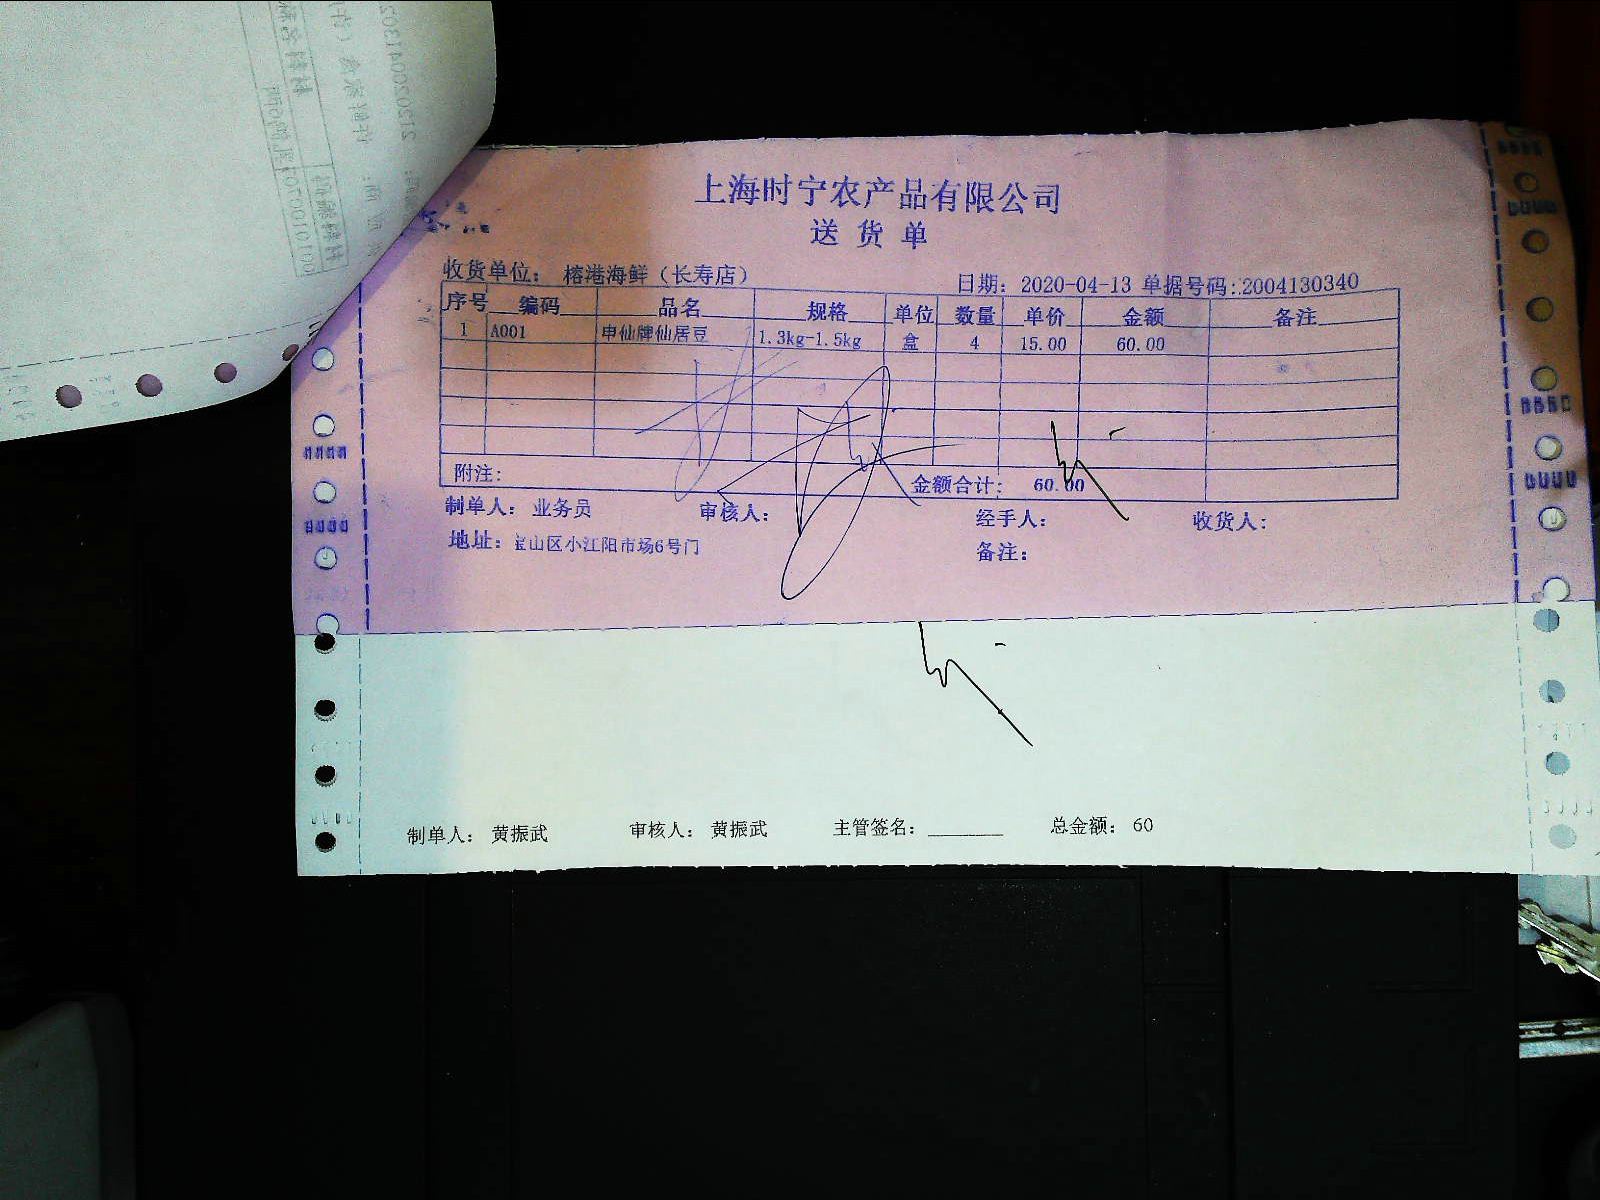 上海时宁农产品有限公司
送 货 单
收货单位： 榕港海鲜（长寿店） 日期： 2020-04-13 单据号码：:2004130340
序号 编码 品名 规格 单位 数量 单价 金额 备注
1 A001 申仙牌仙居豆 1.3kg-1.5kg 盒 4 15.00 60.00
附注： 金额合计： 60.00
制单人： 业务员 审核人： 经手人： 收货人：
地址：宝山区小江阳市场6号门 备注：
制单人： 黄振武 审核人： 黄振武 主管签名：________ 总金额： 60